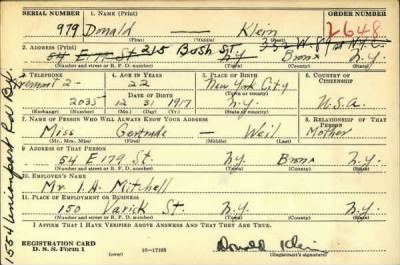 SERIAL NUMBER 1. NAME (Print) ORDER NUMBER
979 Donald — Klein 2648
(First) (Middle) (Last)
2. ADDRESS (Print)
54 E 179 St. 215 Bosh St. N.Y. Bronx N.Y.
(Number and street or R. F. D. number) (Town) (County) (State)
3. TELEPHONE 4. AGE IN YEARS 5. PLACE OF BIRTH 6. COUNTRY OF CITIZENSHIP
Tremont 2- 22 New York City
DATE OF BIRTH (Town or county)
2035 12 31 1917 N.Y. U.S.A.
(Exchange) (Number) (Mo.) (Day) (Yr.) (State or country)
7. NAME OF PERSON WHO WILL ALWAYS KNOW YOUR ADDRESS 8. RELATIONSHIP OF THAT PERSON
Miss Gertrude — Weil Mother
(Mr., Mrs., Miss) (First) (Middle) (Last)
9. ADDRESS OF THAT PERSON
54 E 179 St. N.Y. Bronx N.Y.
(Number and street or R. F. D. number) (Town) (County) (State)
10. EMPLOYER'S NAME
Mr. I. A. Mitchell
11. PLACE OF EMPLOYMENT OR BUSINESS
150 Varick St. N.Y. N.Y.
(Number and street or R. F. D. number) (Town) (County) (State)
I AFFIRM THAT I HAVE VERIFIED ABOVE ANSWERS AND THAT THEY ARE TRUE.
REGISTRATION CARD
D. S. S. Form 1 16—17105 Donald Klein
(Registrant's signature)
1554 Unionport Rd Bx.